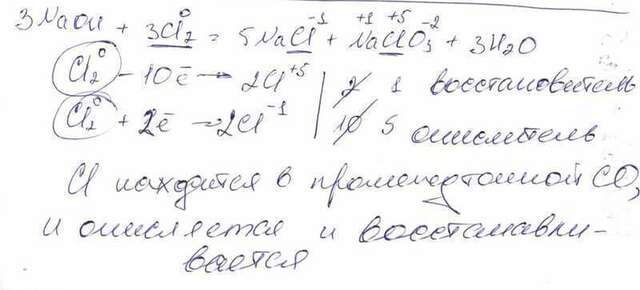 3NaOH + 3Cl₂⁰ = 5NaCl⁻¹ + Na⁺¹Cl⁺⁵O₃⁻² + 3H₂O
Cl₂⁰ - 10ē → 2Cl⁺⁵ | 2 1 восстановитель
Cl₂⁰ + 2ē → 2Cl⁻¹ | 10 5 окислитель
Cl находится в промежуточной СО,
и окисляется и восстанавли-
вается